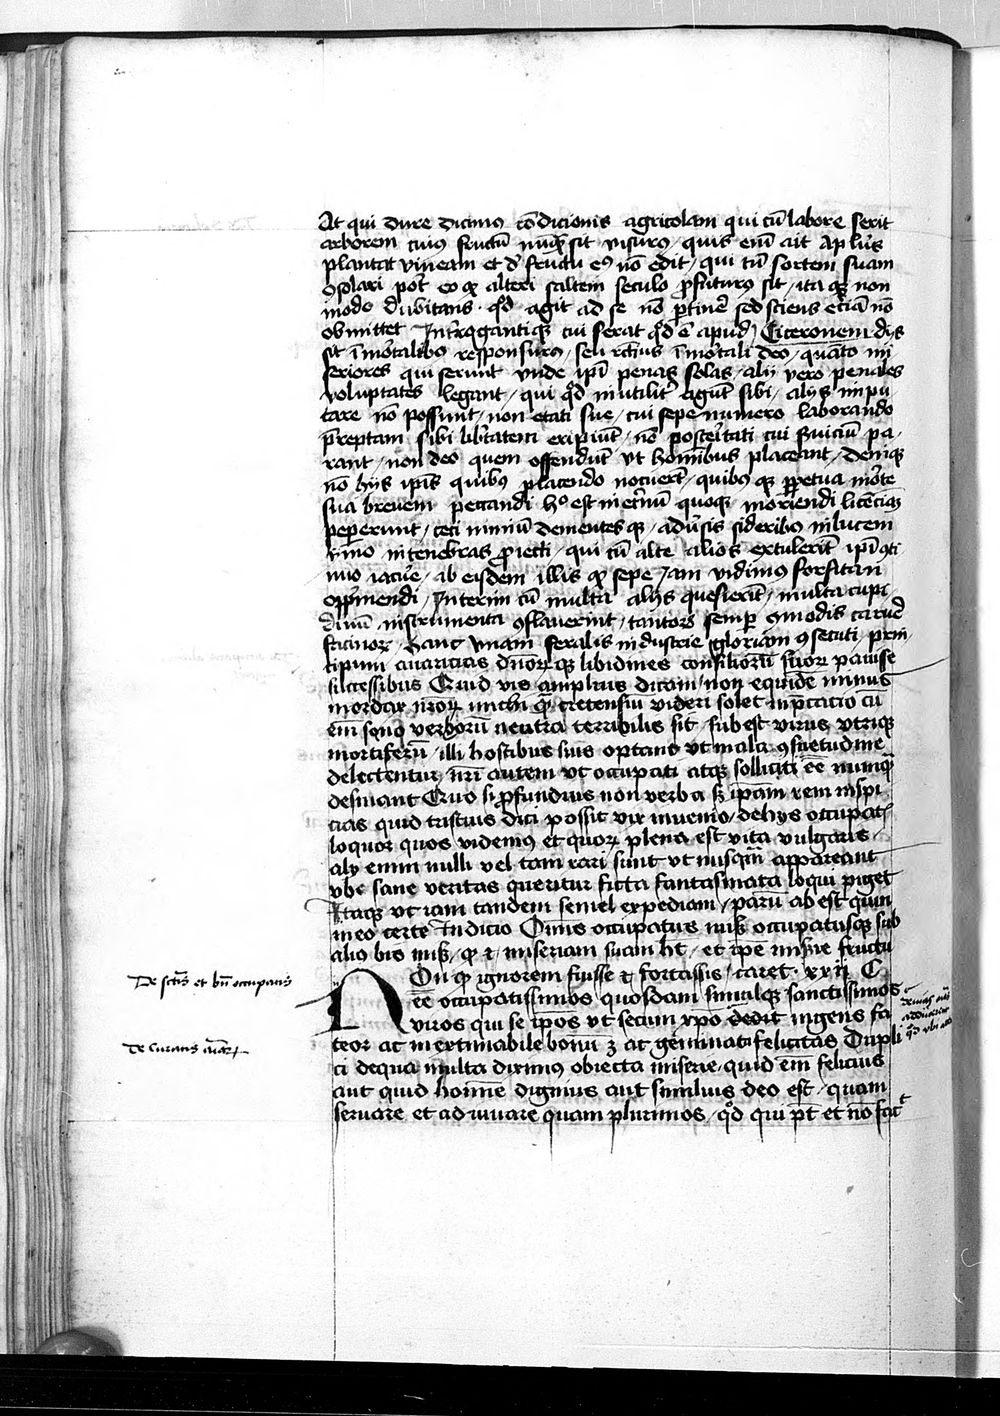 At qui dure dicimus cōdicionis agricolam qui cū labore serit
arborem cuius fructū nūq̄ sit visurus / quis enī ait aplūs
plantat vineam et d̄ fructu eiꝰ nō edit / qui tn̄ sortem suam
ꝯsolari pot̄ eo ꝙ alteri saltem seculo ꝓfuturus sit / ita qꝫ non
modo dubitans qd̄ agit ad se nō ꝑtinē sed sciens etiā nō
obmittet Interrogantiqꝫ cui serat qd̄ ē apud Ciceronem dijs
sit īmortalibus responsurus / seu rectius īmortali deo / quāto mi
seriores qui serunt vnde ipī penas solas / alij vero penales
voluptates legant / qui qd̄ inutiliter agūt sibi / alijs impu
tare nō possunt / non etati sue / cui sepe numero laborando
p̄reptam sibi lib̄tatem eripiūt / nō posteritati cui suiciū pa
rant / non deo quem offendūt vt hominibus placeant / Deniqꝫ
nō hijs ipīs quibus placendo nocuer̄t / quibus qꝫ ꝑpetua mōte
sua brevem peccandi hoc est in et̄nū quoqꝫ moriendi licēciā
pepererunt / ceci nimiū dementes qꝫ / adūsis sideribus in lucem
ymo in tenebras ꝓiecti / qui cū alte alios extulerīt ipī ꝯti
nuo iacuē / ab eisdem illis ꝙ sepe iam vidimus forsitan
opp̄mendi / Interim cū multa alijs quesierīt / multa cupi
dinū instrumenta ꝯflaverint / tantorꝫ semper ꝯmodis carued
facinorꝫ / hanc vnam feralis industrie gloriam ꝯsecuti / prin
cipum avaricias dn̄orꝫ qꝫ libidines consiliorū suorꝫ pavisse
successibus Quid vis amplius dicam / non equidē minus
mordax nrōrꝫ michi q̄ cretensiū videri solet inp̄catio cū
em̄ sono verborū neutra terribilis sit / subest virus vtriqꝫ
mortiferū / illi hostibus suis optans vt mala ꝯsuetudine
delectentur / nrī autem vt occupati atqꝫ solliciti eē nunq̄
desinant Quo si ꝓfundius non verba sꝫ ipam rem inspi
cias quid tristius dici possit vix invenio / de hijs occupatꝭ
loquor quos videmus et quorꝫ plena est vita vulgaris /
alij enim nulli vel tam rari sunt vt nusq̄ appareant
vbi sane veritas queritur ficta fantasmata loqui piget
Itaqꝫ vt iam tandem semel expediam / parū abest quin
meo certe Indicio Omnis occupatus mis̄ occupatusqꝫ sub
alio bis mis̄ / ꝙ ⁊ miseriam suam hēt / et ipē misere fructu
Non ꝙ ignorem fuisse ⁊ fortassis caret · xxij C
eē occupatissimos quosdam simulqꝫ sanctissimos
viros qui se ipōs vt secum xpō dedit ingens fa
teor at inextimabile bonū ꝫ at geminati felicitas Dupli
ci de qua multa diximus obiecta miserie / quid em̄ felicius
aut quid homine dignius aut similius deo est / quam
servare et adiuvare quam plurimos / qd̄ qui pt̄ et nō facit
De sctīs et bn̄ occupatis
De curatis aīarꝫ